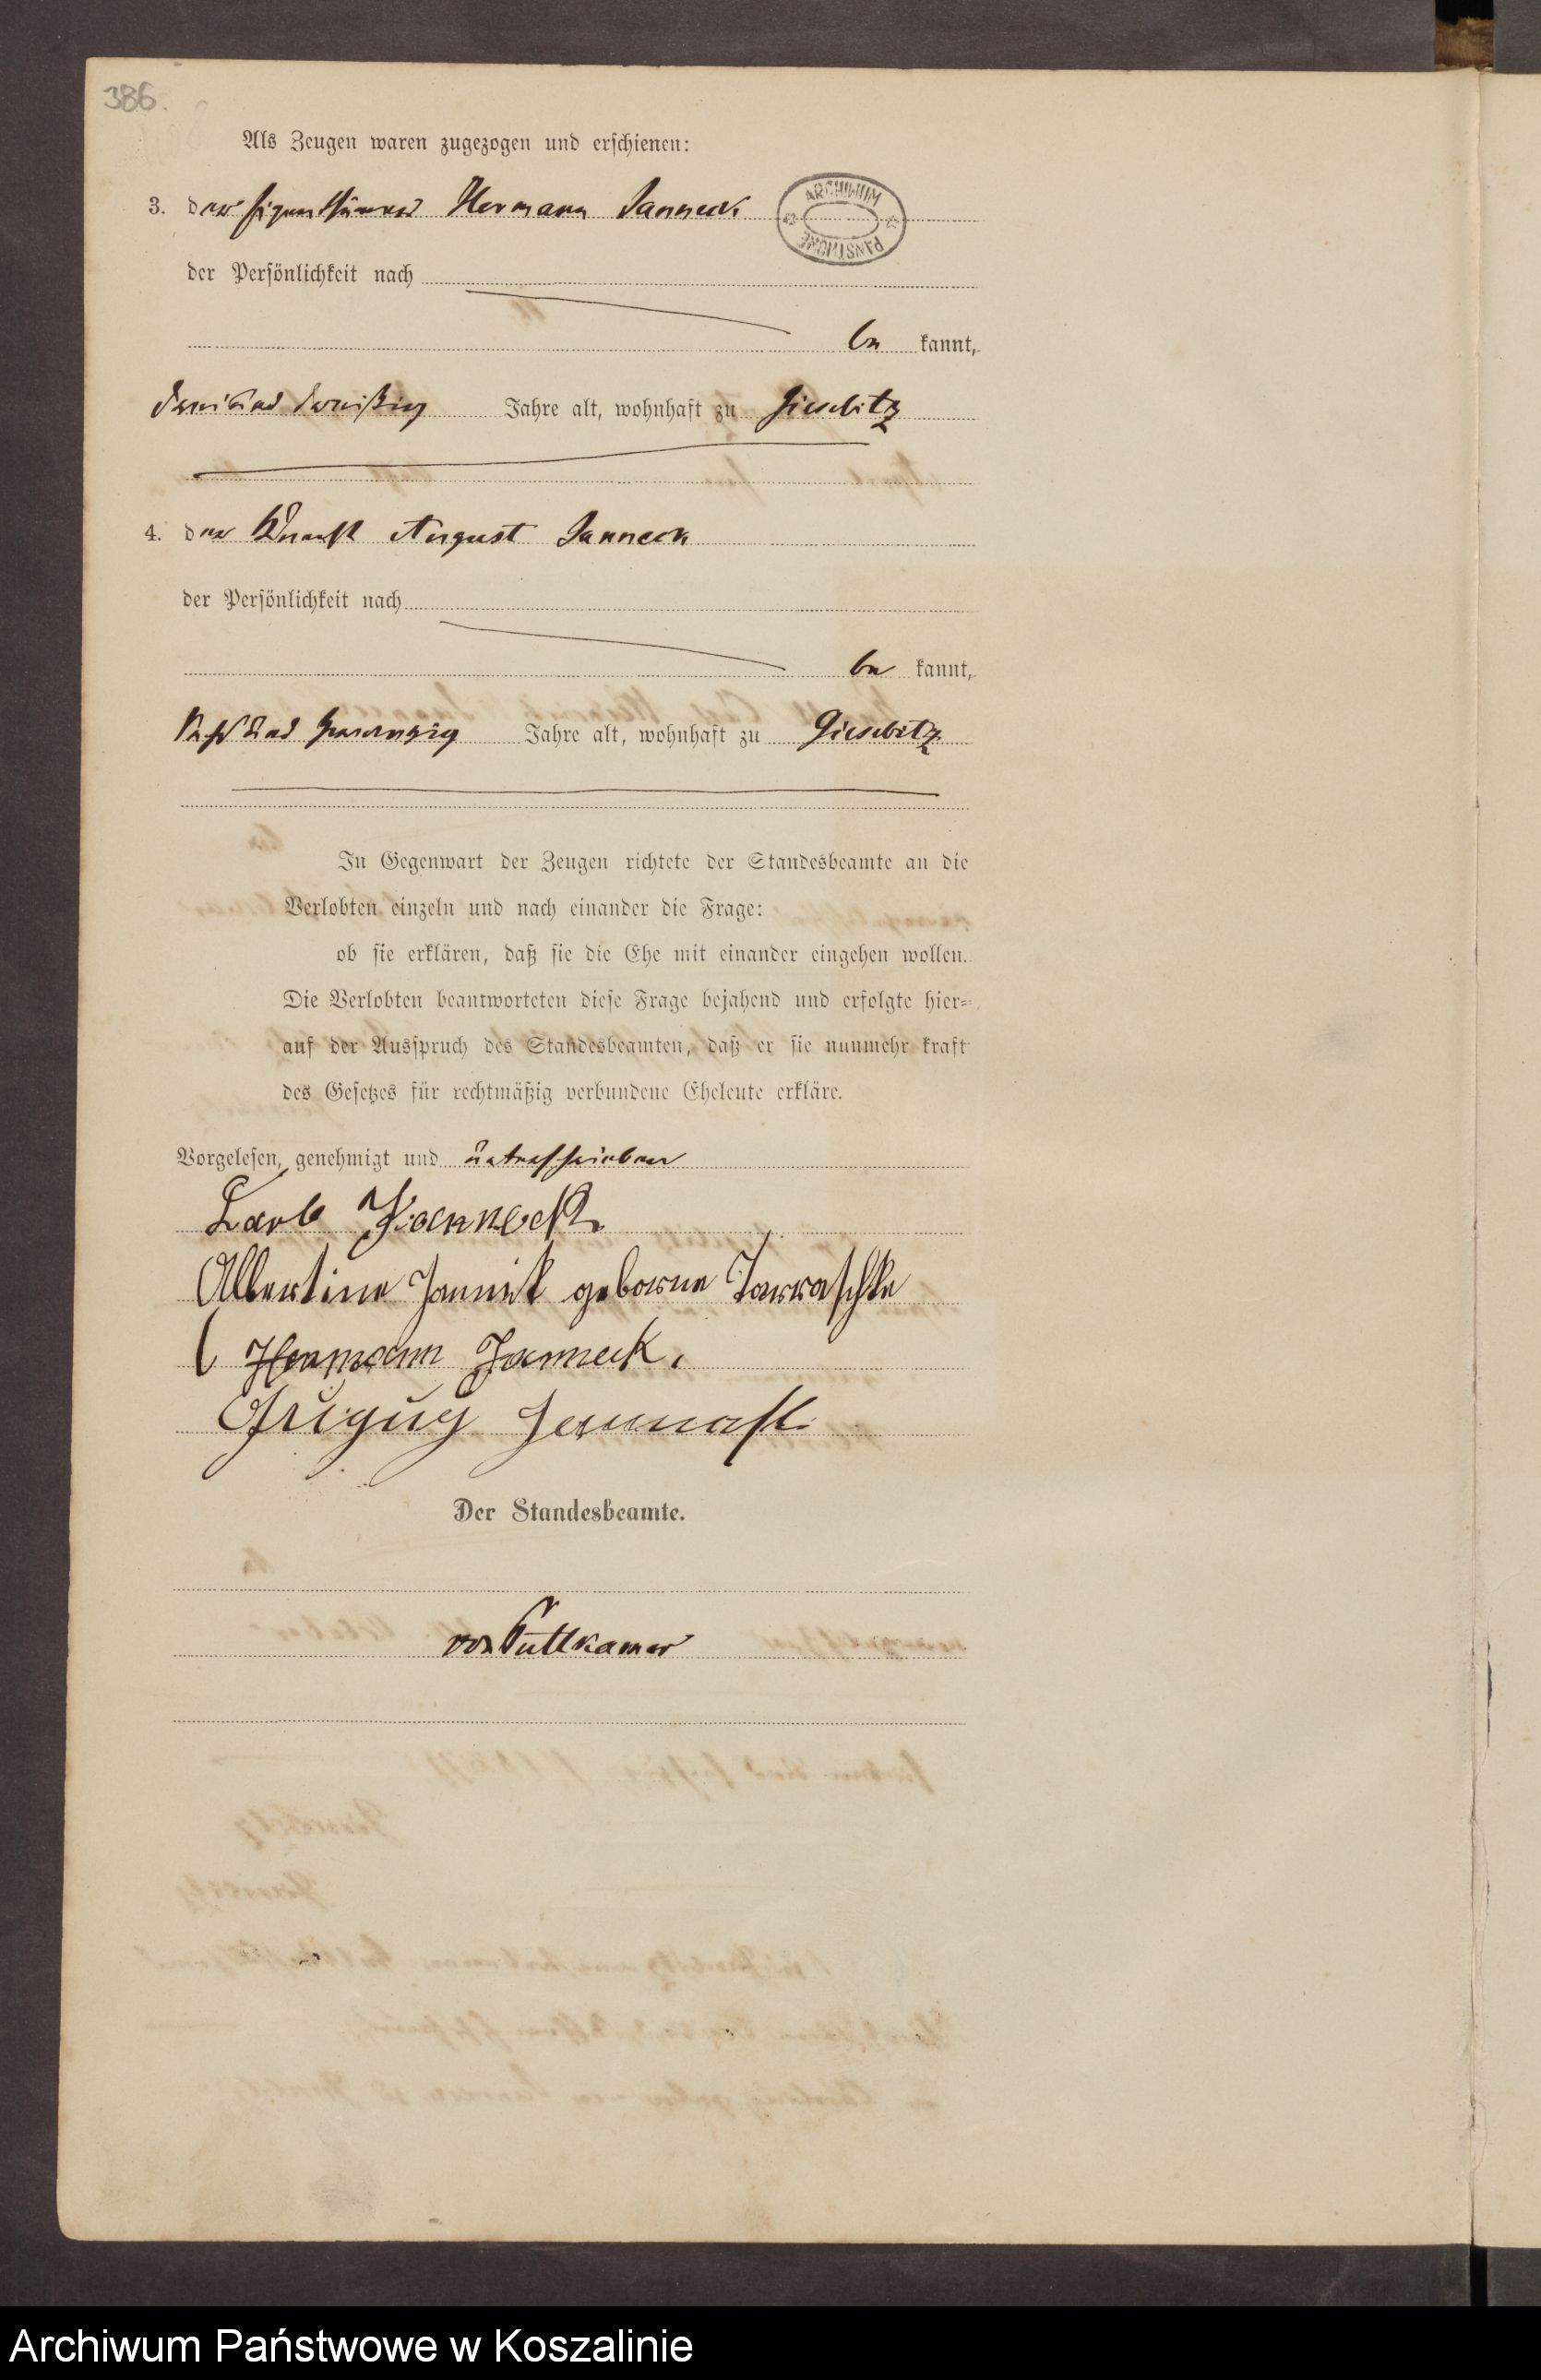 386.
Als Zeugen waren zugezogen und erschienen:
ARCHIWUM PAŃSTWOWE
3. der Eigenthümer Hermann Janneck
der Persönlichkeit nach
be kannt,
dreiund dreißig Jahre alt, wohnhaft zu Giesebitz
4. der Knecht August Janneck
der Persönlichkeit nach
be kannt,
zwanzig Jahre alt, wohnhaft zu Giesebitz
In Gegenwart der Zeugen richtete der Standesbeamte an die
Verlobten einzeln und nach einander die Frage:
ob sie erklären, daß sie die Ehe mit einander eingehen wollen.
Die Verlobten beantworteten diese Frage bejahend und erfolgte hier=
auf der Ausspruch des Standesbeamten, daß er sie nunmehr kraft
des Gesetzes für rechtmäßig verbundene Eheleute erkläre.
Vorgelesen, genehmigt und unterschrieben
Karl Janneck
Albertine Jannek geborne Tarraschke
Hermann Janneck.
Der Standesbeamte.
von Puttkamer
Archiwum Państwowe w Koszalinie